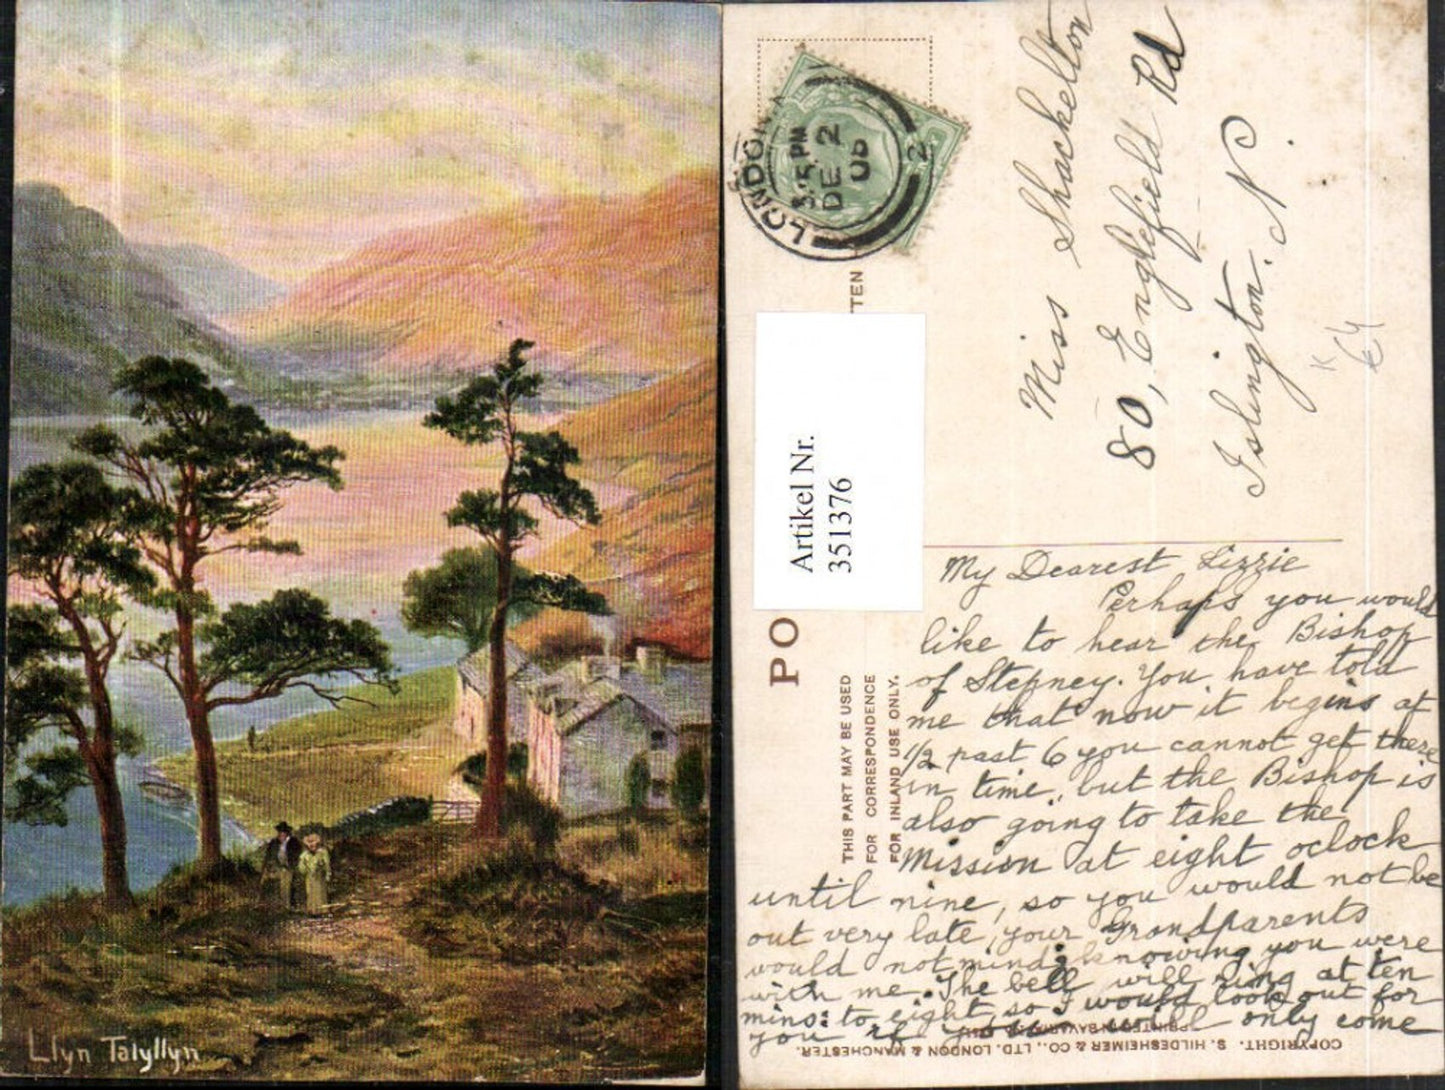 Llyn Talyllyn
LONDON.
3.15 PM
DE 2
05
2
TEN
Artikel Nr.
351376
PO
THIS PART MAY BE USED
FOR CORRESPONDENCE
FOR INLAND USE ONLY.
Miss Shackelton
80, Englefield Rd
Islington. N.
My Dearest Lizzie
Perhaps you would
like to hear the Bishop
of Stepney. You have told
me that now it begins at
1/2 past 6 you cannot get there
in time, but the Bishop is
also going to take the
Mission at eight oclock
until nine, so you would not be
out very late, your Grandparents
would not mind knowing you were
with me. The bell will ring at ten
mins: to eight, so I would look out for
you if you will only come
COPYRIGHT. S. HILDESHEIMER & CO., LTD. LONDON & MANCHESTER.
PRINTED IN BAVARIA